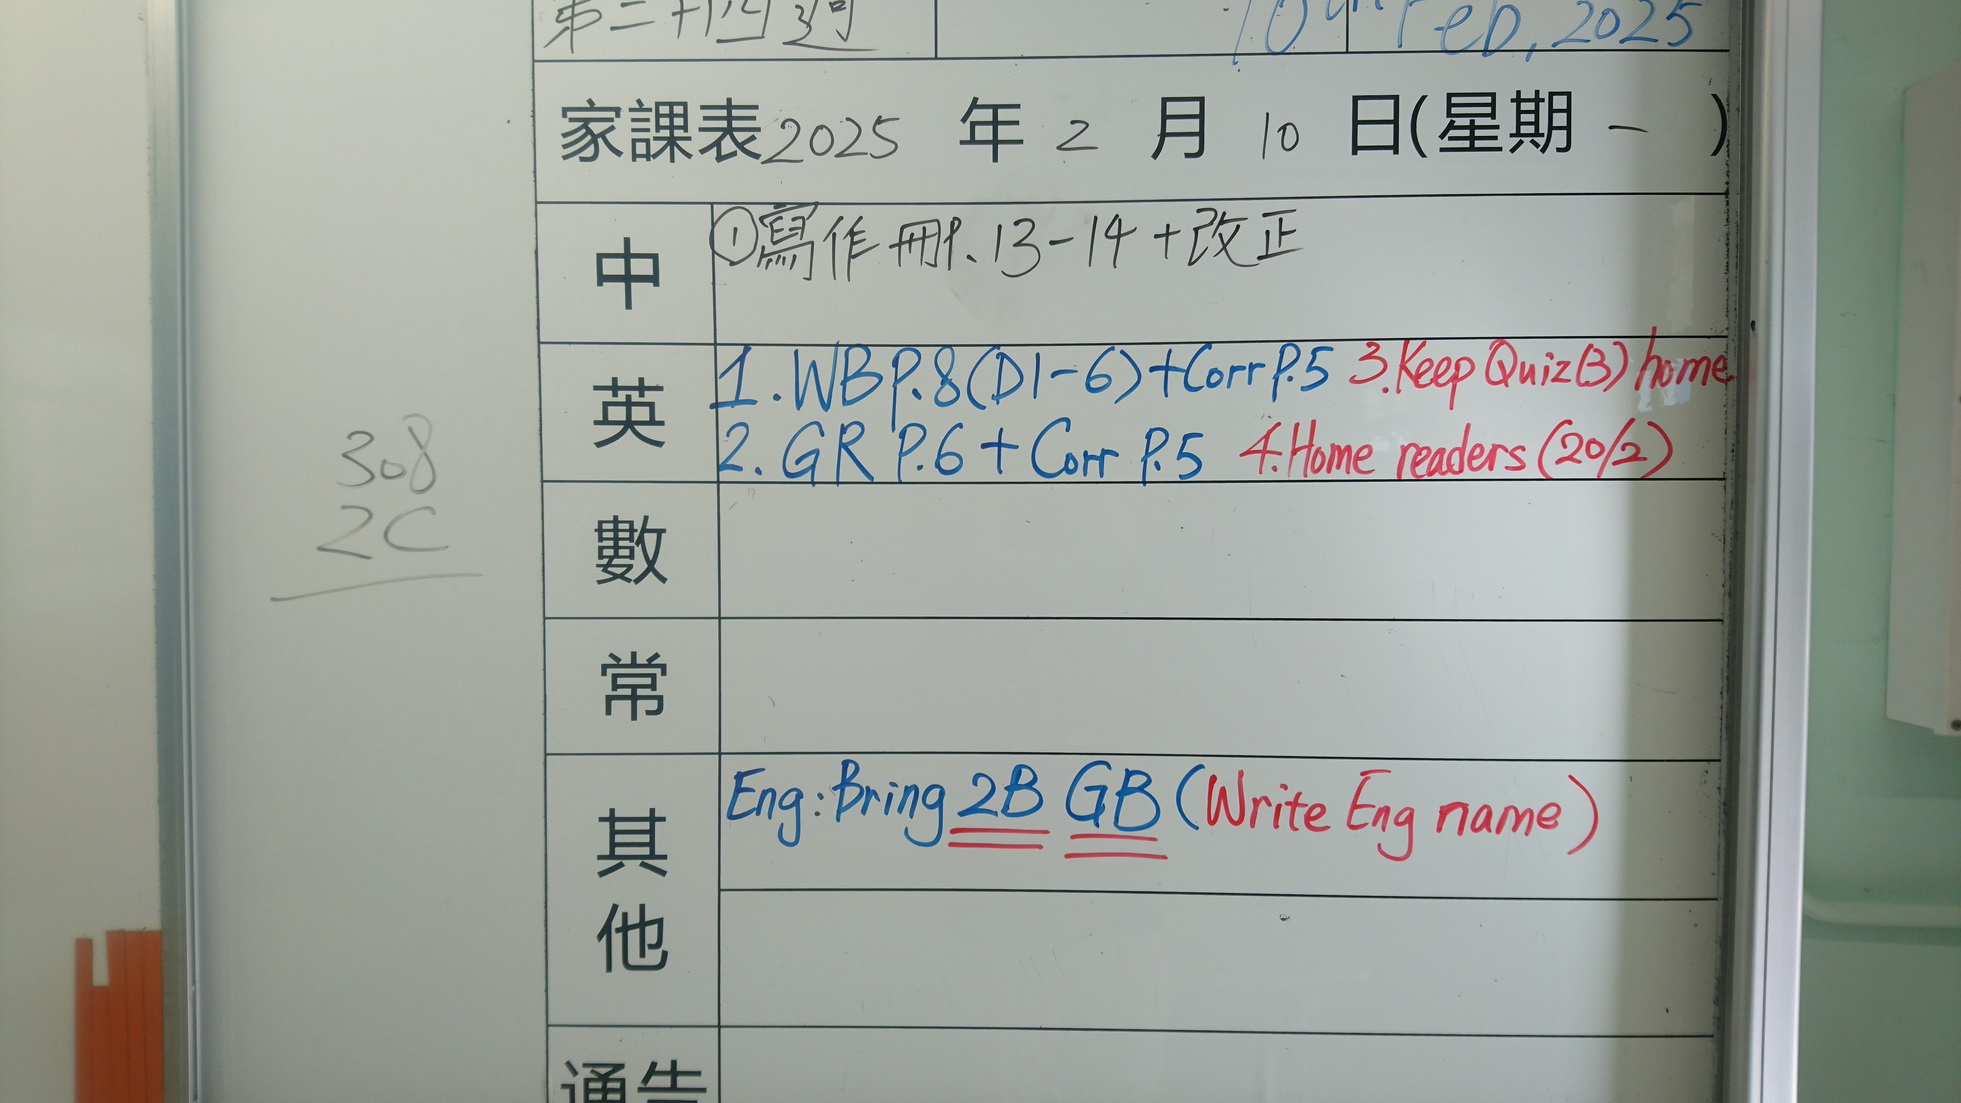 第二十四週
10th Feb, 2025
家課表2025 年 2 月 10 日(星期 一 )
中
①寫作冊P.13-14+改正
英
1.WB P.8(D1-6)+Corr P.5 3.Keep Quiz(3) home
2. GR P.6 + Corr P.5 4.Home readers (20/2)
308
2C
數
常
其他
Eng: Bring 2B GB (Write Eng name)
通告